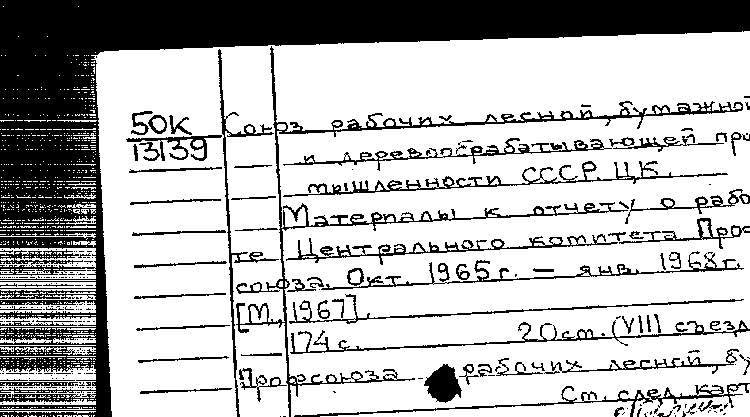 50К
13139
Союз рабочих лесной, бумажной
и деревообрабатывающей про
мышленности СССР. ЦК.
Материалы к отчету о рабо
те Центрального комитета Проф
союза. Окт. 1965 г. – янв. 1968 г.
[М., 1967].
174 с. 20 см. (VIII съезд
Профсоюза рабочих лесной, бу
См. след. карт